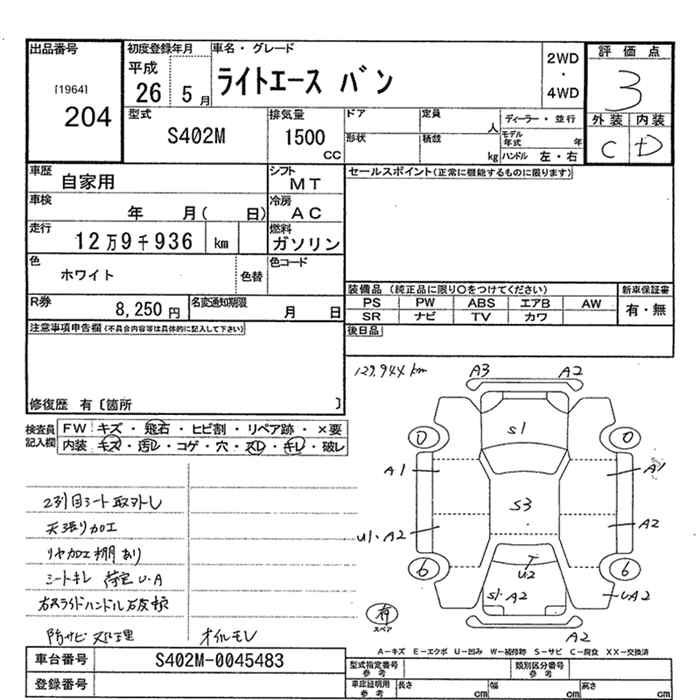 出品番号
[1964]
204
初度登録年月
平成
26 5月
車名・グレード
ライトエース バン
2WD
・
4WD
評価点
3
外装 内装
C D
型式
S402M
排気量
1500
CC
ドア
形状
定員
人
積載
kg
ディーラー・並行
モデル年式 年
ハンドル 左・右
車歴
自家用
シフト
MT
車検
年 月( 日)
冷房
AC
走行
12万9千936 km
燃料
ガソリン
色
ホワイト
色替
色コード
R券
8,250円
名変通知期限
月 日
セールスポイント(正常に機能するものに限ります)
装備品 (純正品に限り〇をつけてください)
PS PW ABS エアB AW
SR ナビ TV カワ
新車保証書
有・無
後日品
注意事項申告欄(不具合内容等は具体的に記入して下さい)
修復歴 有〔箇所 〕
検査員
記入欄
FW キズ・飛石・ヒビ割・リペア跡・×要
内装 キズ・汚レ・コゲ・穴・スレ・キレ・破レ
129,944 km
A3 A2
S1
A1 A1
S3
U1・A2 A2
U2
S1・A2
UA2
A2
有
スペア
2列目シート取外し
天張り加工
リヤ加工棚あり
シートキレ 荷室U・A
防サビ処理 オイルモレ
A-キズ E-エクボ U-凹み W-補修跡 S-サビ C-腐食 XX-交換済
車台番号
S402M-0045483
登録番号
型式指定番号
参考
類別区分番号
参考
車庫証明用
参考
長さ cm 幅 cm 高さ cm